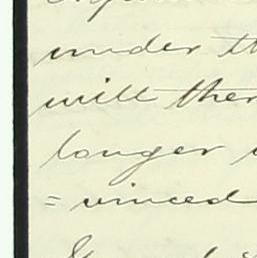 under th
will ther
longer
= vinced